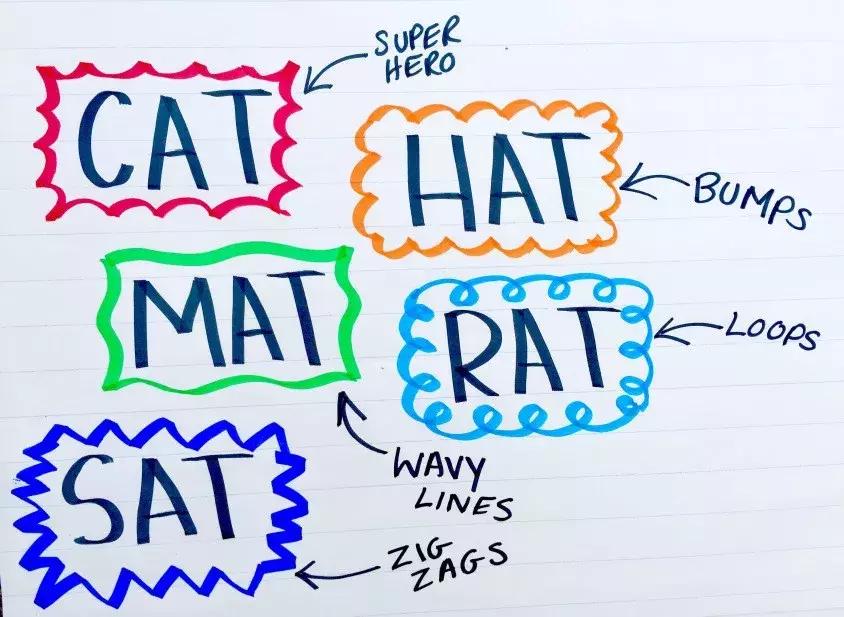 CAT
SUPER
HERO
HAT
BUMPS
MAT
RAT
LOOPS
WAVY
LINES
SAT
ZIG
ZAGS